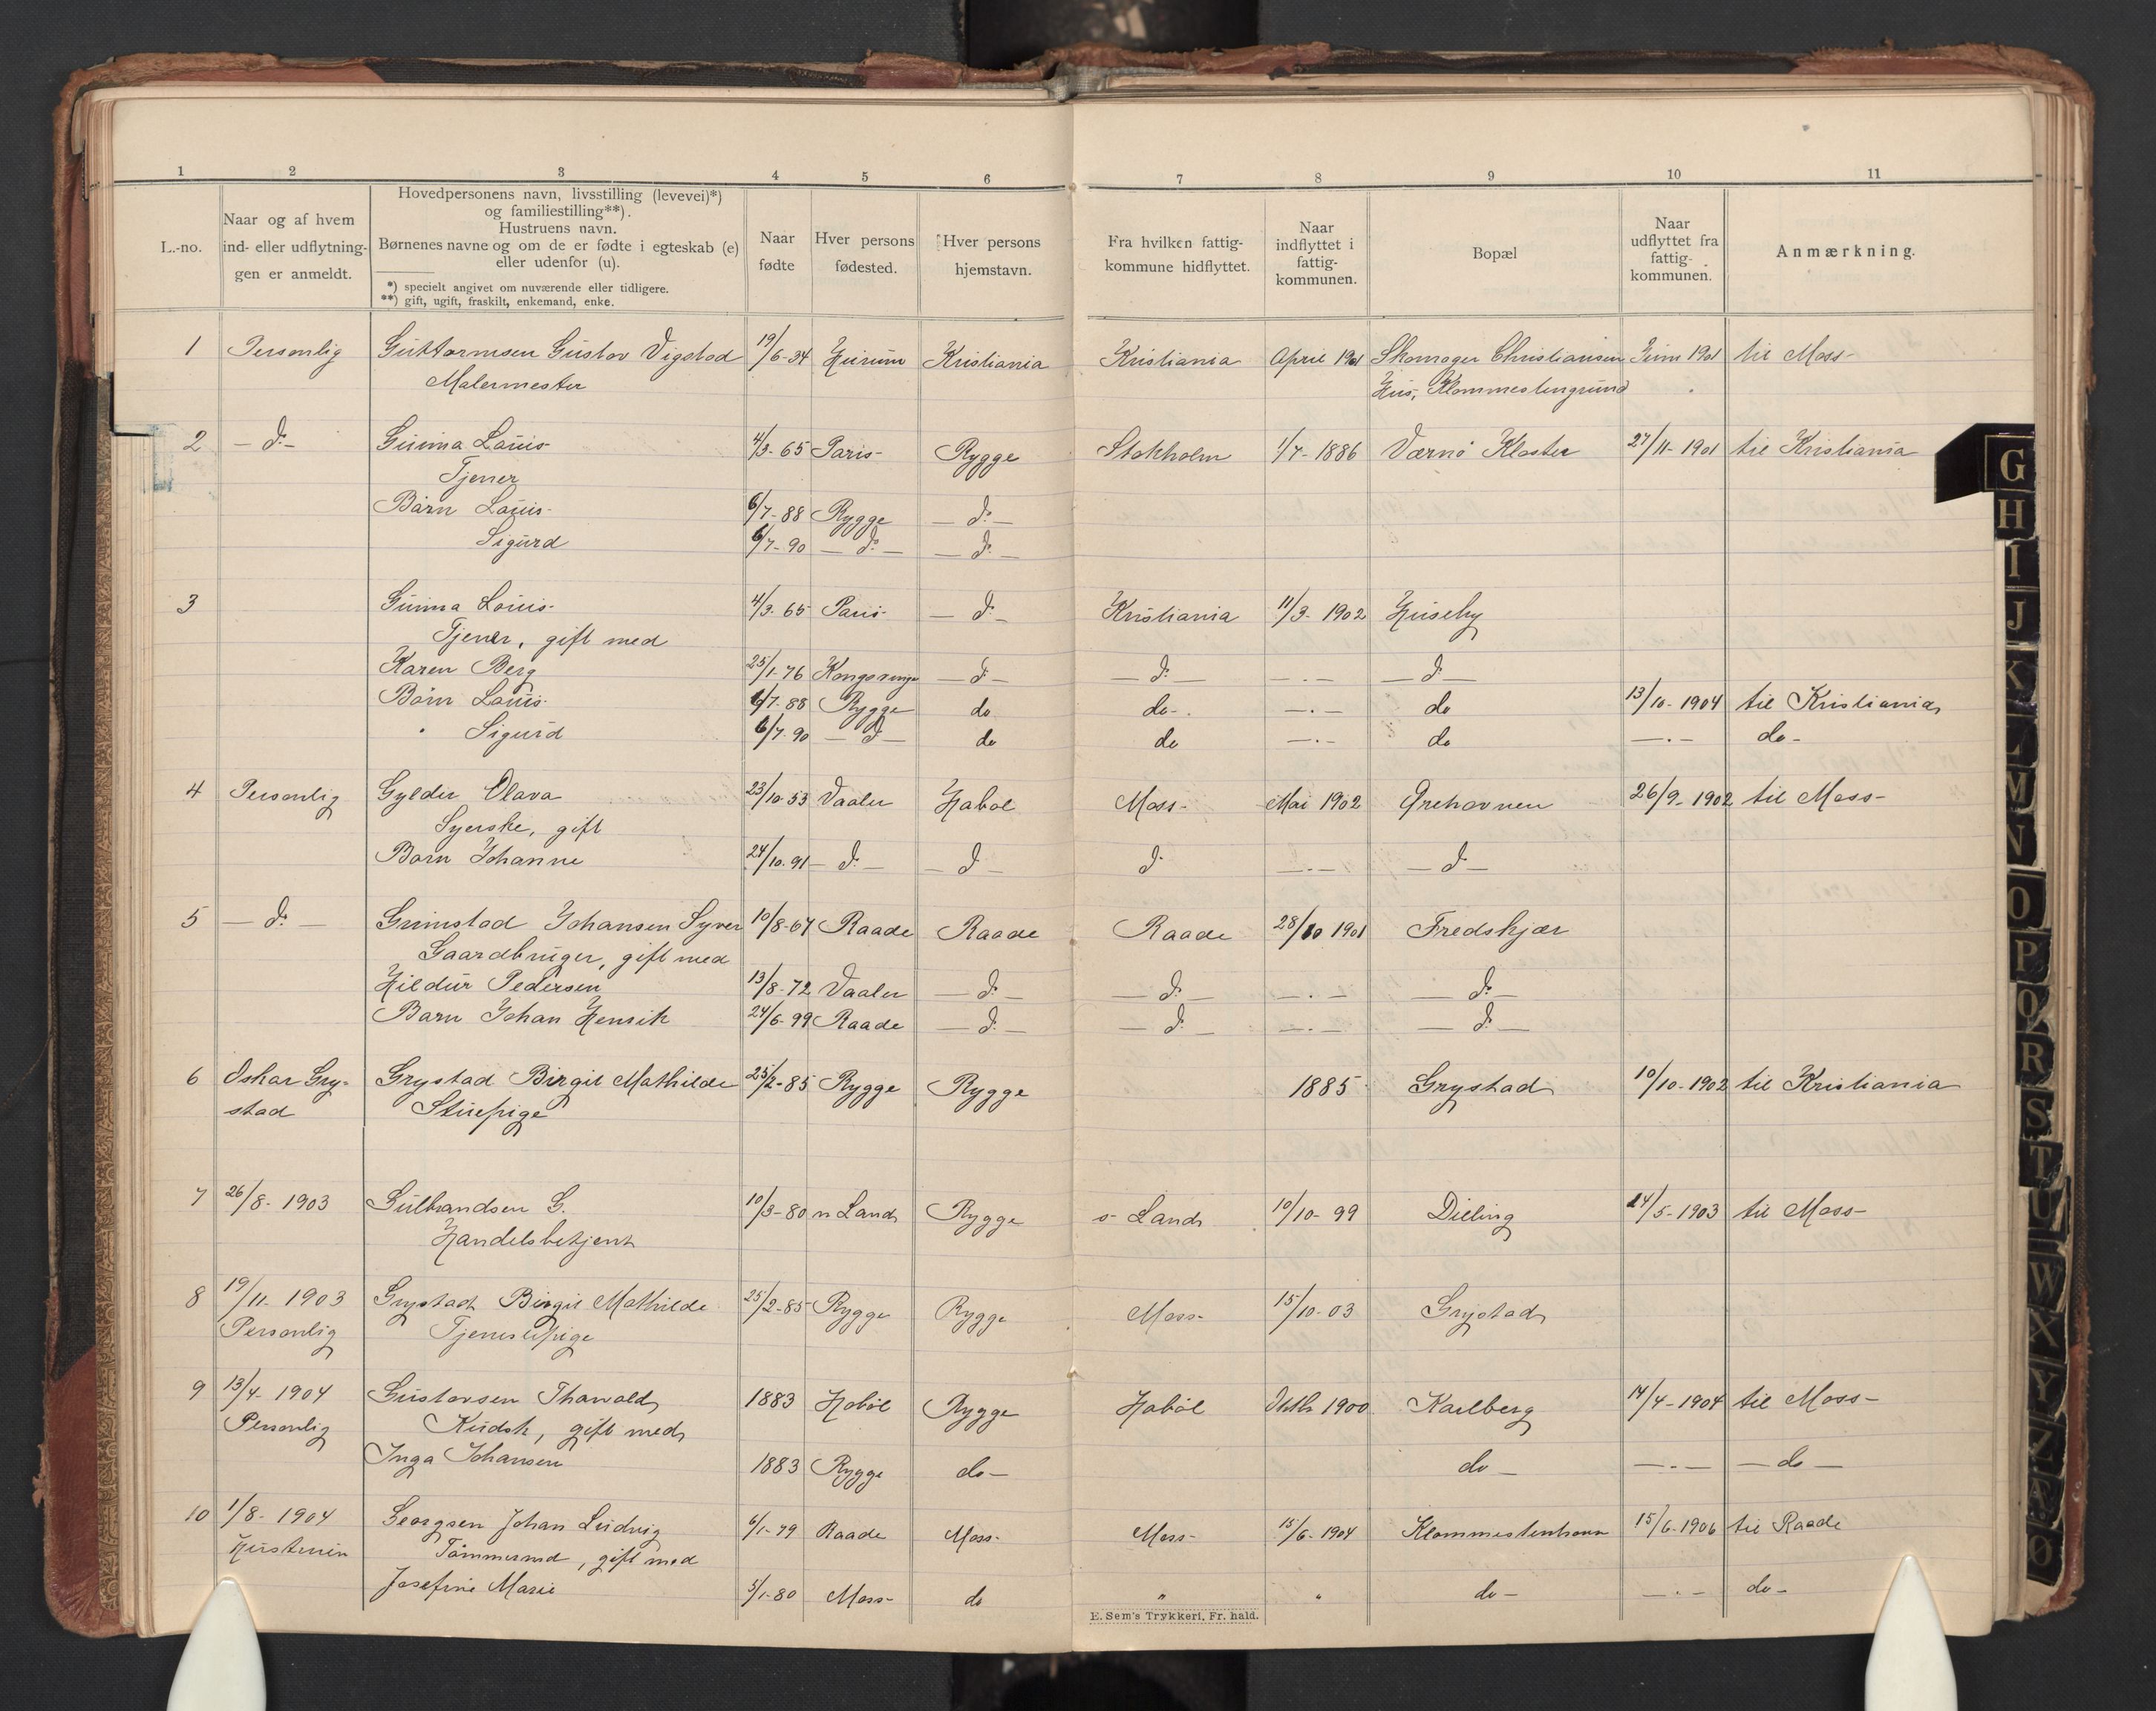 1 2 3 4 5 6 7 8 9 10 11
L.-no.
Naar og af hvem
ind- eller udflytnin-
gen er anmeldt.
Hovedpersonens navn, livsstilling (levevei)*)
og familiestilling**).
Hustruens navn.
Børnenes navne og om de er fødte i egteskab (e)
eller udenfor (u).
*) specielt angivet om nuværende eller tidligere.
**) gift, ugift, fraskilt, enkemand, enke.
Naar
fødte
Hver persons
fødested.
Hver persons
hjemstavn.
Fra hvilken fattig-
kommune hidflyttet.
Naar
indflyttet i
fattig-
kommunen.
Bopæl
Naar
udflyttet fra
fattig-
kommunen.
Anmærkning.
1 Personlig Guttormsen Gustav Vigstad 19/6-34 Kristiania Kristiania April 1901 Skomager Christiansen Juni 1901 til Moss-
Malermester Hus, Klommestengrund
2 - do - Guima Louis 4/3-65 Paris- Rygge Stokholm 1/7-1886 Værnø Kloster 27/11-1901 til Kristiania
Tjener
Barn Louis- 6/7-88 Rygge - do -
Sigurd 6/7-90 - do - - do -
3 Guima Louis- 4/3-65 Paris- - do - Kristiania 11/3-1902 Huseby
Tjener, gift med
Karen Berg 25/1-76 Kongsvinger - do - - do - -.- - do -
Barn Louis- 6/7-88 Rygge do do-. -.- do 13/10-1904 til Kristiania
Sigurd 6/7-90 - do - do do -.- do -.- do-
4 Personlig Gylder Olava 23/10-53 Vaaler Habøl Moss- Mai 1902 Grehavnen 26/9-1902 til Moss-
Syerske, gift
Barn Johanne 24/10-91 - do - - do - do -.- - do -
5 - do - Grimstad Johansen Syver 10/8-67 Raade Raade Raade 28/10 1901 Fredskjær
Gaardbruger, gift med
Hildur Pedersen 13/8-72 Vaaler - do - - do - -.- - do -
Barn Johan Henrik 24/6-99 Raade - do - - do - -.- - do -
6 Oskar Gry- Grystad Birgit Mathilde 25/2-85 Rygge Rygge 1885 Grystad 10/10-1902 til Kristiania
stad Stuepige
7 26/8-1903 Gulbrandsen G. 10/3-80 n Land Rygge s- Land 10/10-99 Dilling 14/5-1903 til Moss-
Handelsbetjent
8 19/11-1903 Grystad Birgit Mathilde 25/2-85 Rygge Rygge Moss- 15/10-03 Grystad
Personlig Tjenestepige
9 13/4-1904 Gustavsen Tharvald 1883 Hobøl Rygge Habøl Oktb 1900 Karlberg 14/4-1904 til Moss-
Personlig Kudsk, gift med
Inga Johansen 1883 Rygge do- do - -.- - do -
10 1/8-1904 Georgsen Johan Ludvig 6/1-79 Raade Moss- Moss- 15/6-1904 Klommestenhaven 15/6-1906 til Raade
Hustruen Tømmermd, gift med
Josefine Marie 5/1-80 Moss- do " " do- -.- do-
E. Sem's Trykkeri, Fr. hald.
G
H
I
J
K
L
M
N
O
P
Q
R
S
T
U
W
X
Y
Z
Æ
Ø